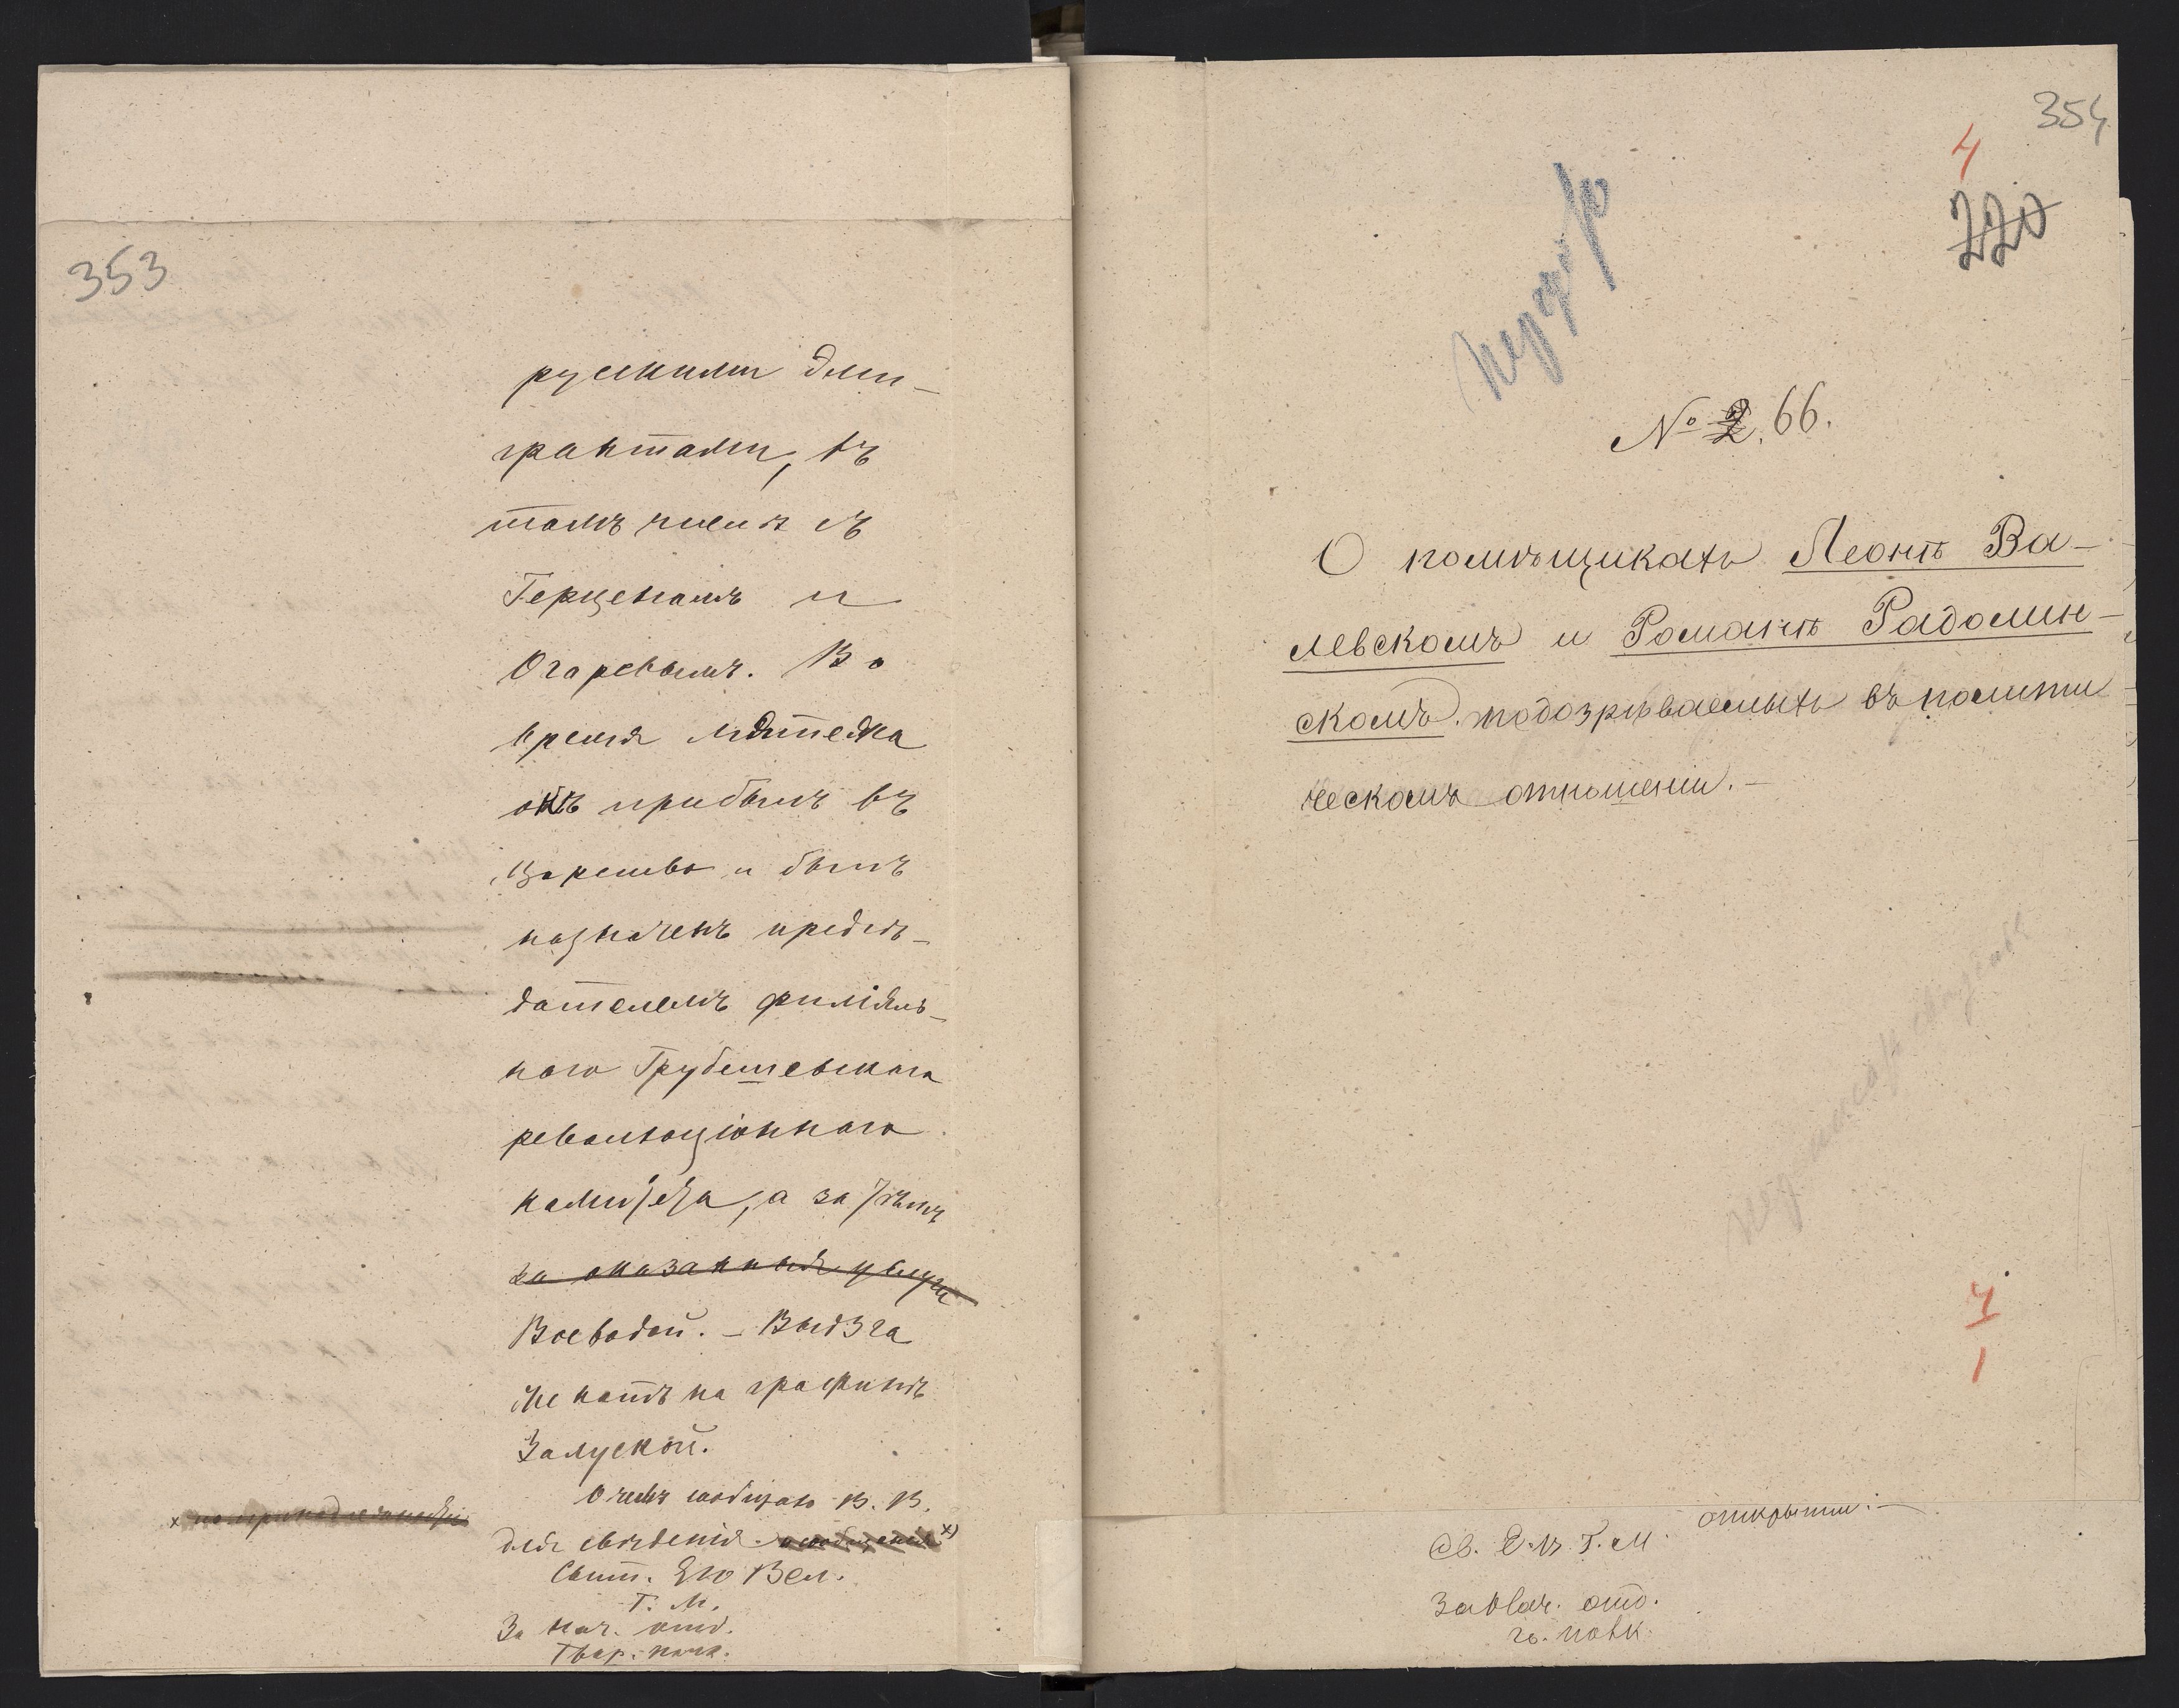 353
русскими эми-
грантами, въ
томъ числѣ съ
Герценомъ и
Огаревымъ. Во
время мятежа
онъ прибылъ въ
Царство и былъ
назначенъ предсѣ-
дателемъ филіаль-
наго Грубешевскаго
революціоннаго
комитета, а за тѣмъ
за оказанныя услуги
Воеводой. – Выдзга
женатъ на графинѣ
Залуской.
О чемъ сообщаю В. В.
для свѣдѣнія х)
х по принадлежности
Свит. Его Вел.
Г. М.
За Нач. отд.
Гвар. полк.
354
4
220
№ 2. 66.
О помѣщикахъ Леонѣ Ва-
левскомъ и Романѣ Радолин-
скомъ подозрѣваемыхъ въ полити
ческомъ отношеніи. –
4
1
открыты. –
Св. Е. В. Г. М.
За Нач. отд.
гв. полк.